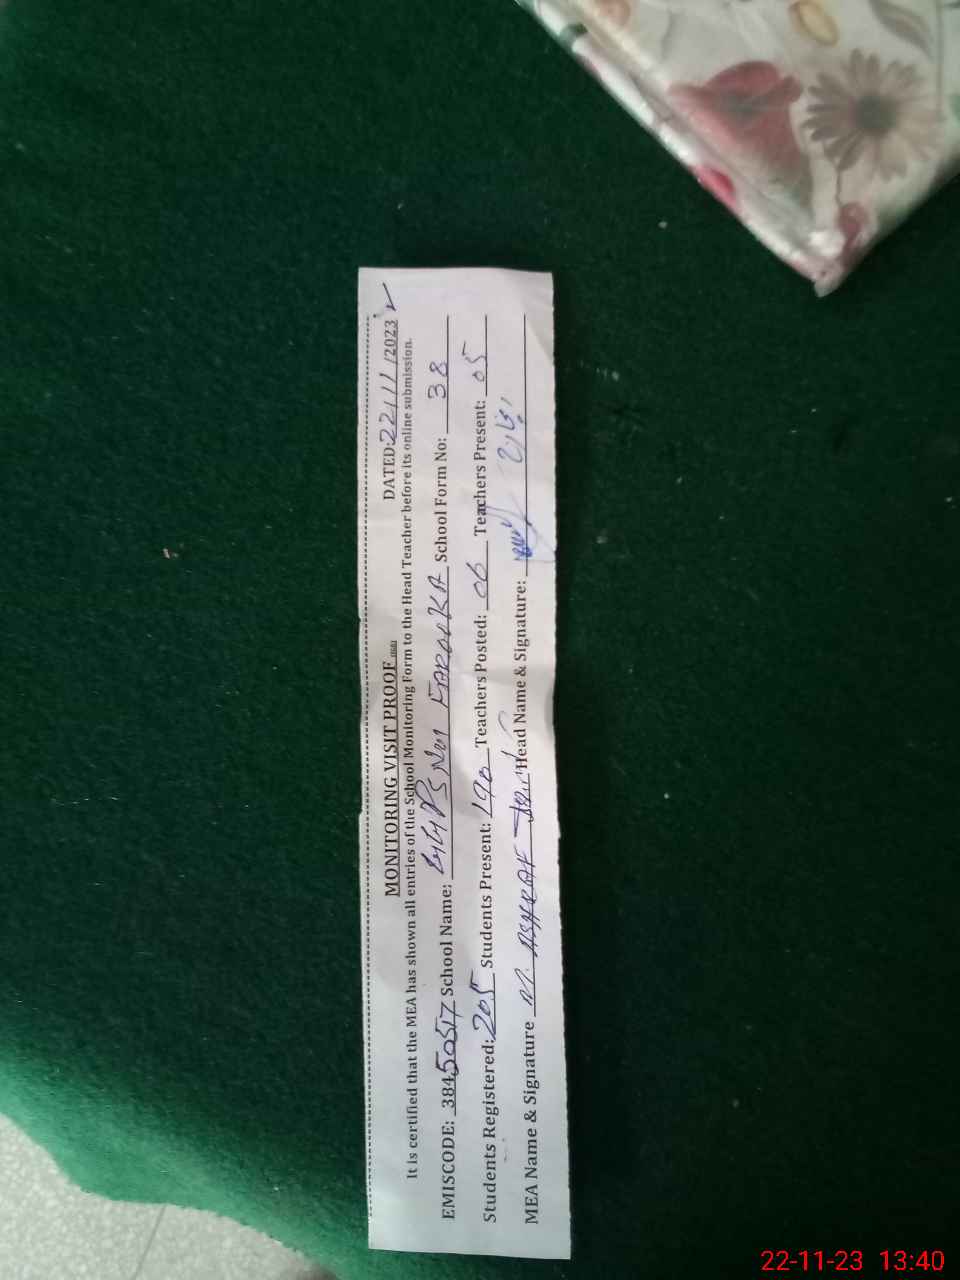 MONITORING VISIT PROOF DATED: 22/11/2023
It is certified that the MEA has shown all entries of the School Monitoring Form to the Head Teacher before its online submission.
EMISCODE: 38450517 School Name: GGPS No1 FAROOKA School Form No: 38
Students Registered: 205 Students Present: 190 Teachers Posted: 06 Teachers Present: 05
MEA Name & Signature M. ASHRAF Head Name & Signature:
22-11-23 13:40